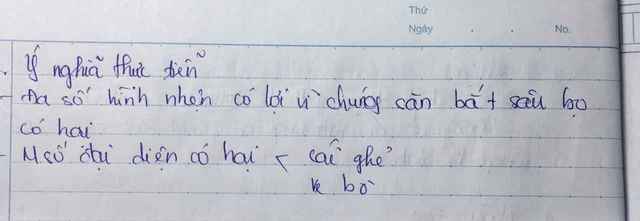 Thứ
Ngày . . No.
Ý nghĩa thực tiễn
- Đa số hình nhện có lợi vì chúng săn bắt sâu bọ
có hại
- Một số đại diện có hại < cái ghẻ
ve bò